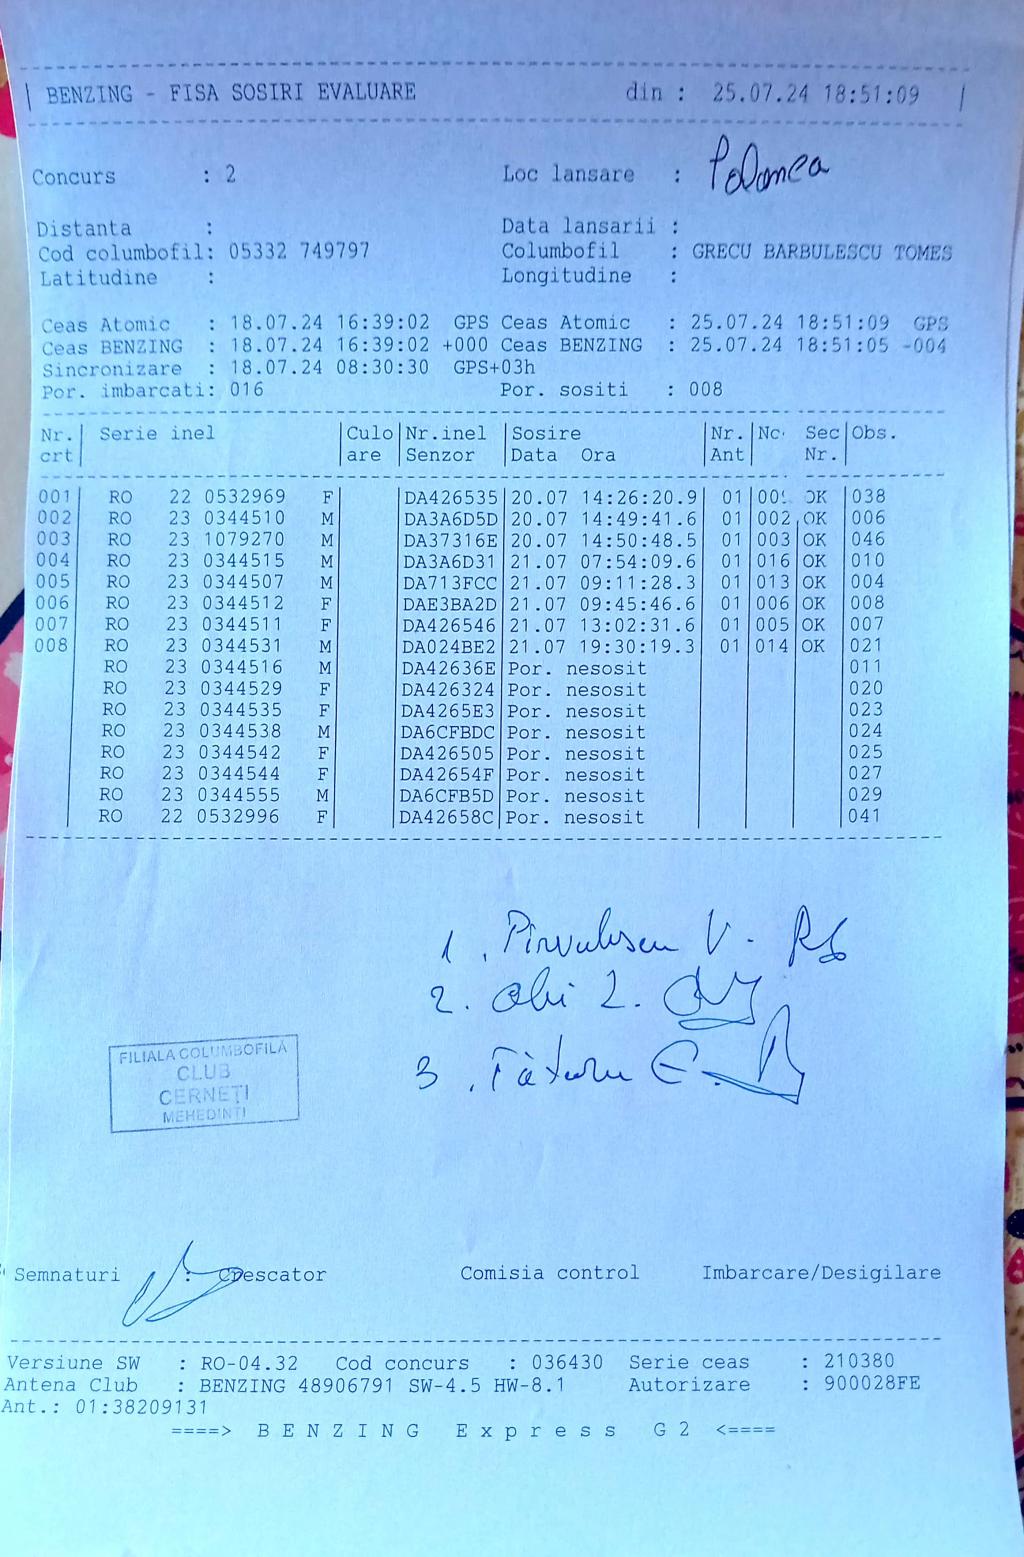 BENZING - FISA SOSIRI EVALUARE din : 25.07.24 18:51:09
Concurs : 2 Loc lansare :
Distanta : Data lansarii :
Cod columbofil: 05332 749797 Columbofil : GRECU BARBULESCU TOMES
Latitudine : Longitudine :
Ceas Atomic : 18.07.24 16:39:02 GPS Ceas Atomic : 25.07.24 18:51:09 GPS
Ceas BENZING : 18.07.24 16:39:02 +000 Ceas BENZING : 25.07.24 18:51:05 -004
Sincronizare : 18.07.24 08:30:30 GPS+03h
Por. imbarcati: 016 Por. sositi : 008
Nr. Serie inel Culo Nr.inel Sosire Nr. Nc. Sec Obs.
crt are Senzor Data Ora Ant Nr.
001 RO 22 0532969 F DA426535 20.07 14:26:20.9 01 OK 038
002 RO 23 0344510 M DA3A6D5D 20.07 14:49:41.6 01 002 OK 006
003 RO 23 1079270 M DA37316E 20.07 14:50:48.5 01 003 OK 046
004 RO 23 0344515 M DA3A6D31 21.07 07:54:09.6 01 016 OK 010
005 RO 23 0344507 M DA713FCC 21.07 09:11:28.3 01 013 OK 004
006 RO 23 0344512 F DAE3BA2D 21.07 09:45:46.6 01 006 OK 008
007 RO 23 0344511 F DA426546 21.07 13:02:31.6 01 005 OK 007
008 RO 23 0344531 M DA024BE2 21.07 19:30:19.3 01 014 OK 021
RO 23 0344516 M DA42636E Por. nesosit 011
RO 23 0344529 F DA426324 Por. nesosit 020
RO 23 0344535 F DA4265E3 Por. nesosit 023
RO 23 0344538 M DA6CFBDC Por. nesosit 024
RO 23 0344542 F DA426505 Por. nesosit 025
RO 23 0344544 F DA42654F Por. nesosit 027
RO 23 0344555 M DA6CFB5D Por. nesosit 029
RO 22 0532996 F DA42658C Por. nesosit 041
1. Pirvulescu V.
2.
3.
FILIALA COLUMBOFILĂ
CLUB
CERNEŢI
MEHEDINŢI
Semnaturi : Crescator Comisia control Imbarcare/Desigilare
Versiune SW : RO-04.32 Cod concurs : 036430 Serie ceas : 210380
Antena Club : BENZING 48906791 SW-4.5 HW-8.1 Autorizare : 900028FE
Ant.: 01:38209131
====> B E N Z I N G E x p r e s s G 2 <====